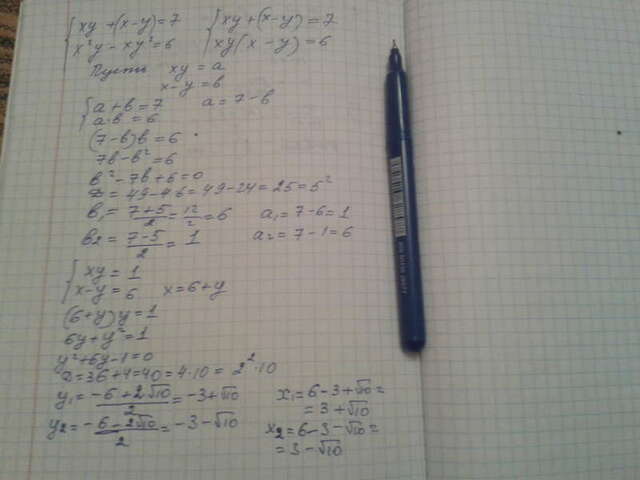 { xy + (x-y) = 7   { xy + (x-y) = 7
{ x²y - xy² = 6   { xy(x-y) = 6
Пусть xy = a
x-y = в
{ a + в = 7   a = 7-в
{ a·в = 6
(7-в)в = 6
7в-в² = 6
в²-7в+6=0
D = 49-4·6 = 49-24 = 25 = 5²
в₁ = (7+5)/2 = 12/2 = 6   a₁ = 7-6 = 1
в₂ = (7-5)/2 = 1   a₂ = 7-1 = 6
{ xy = 1
{ x-y = 6   x = 6+y
(6+y)y = 1
6y+y² = 1
y²+6y-1=0
D = 36+4=40 = 4·10 = 2²·10
y₁ = (-6+2√10)/2 = -3+√10   x₁ = 6-3+√10 =
= 3+√10
y₂ = (-6-2√10)/2 = -3-√10   x₂ = 6-3-√10 =
= 3-√10